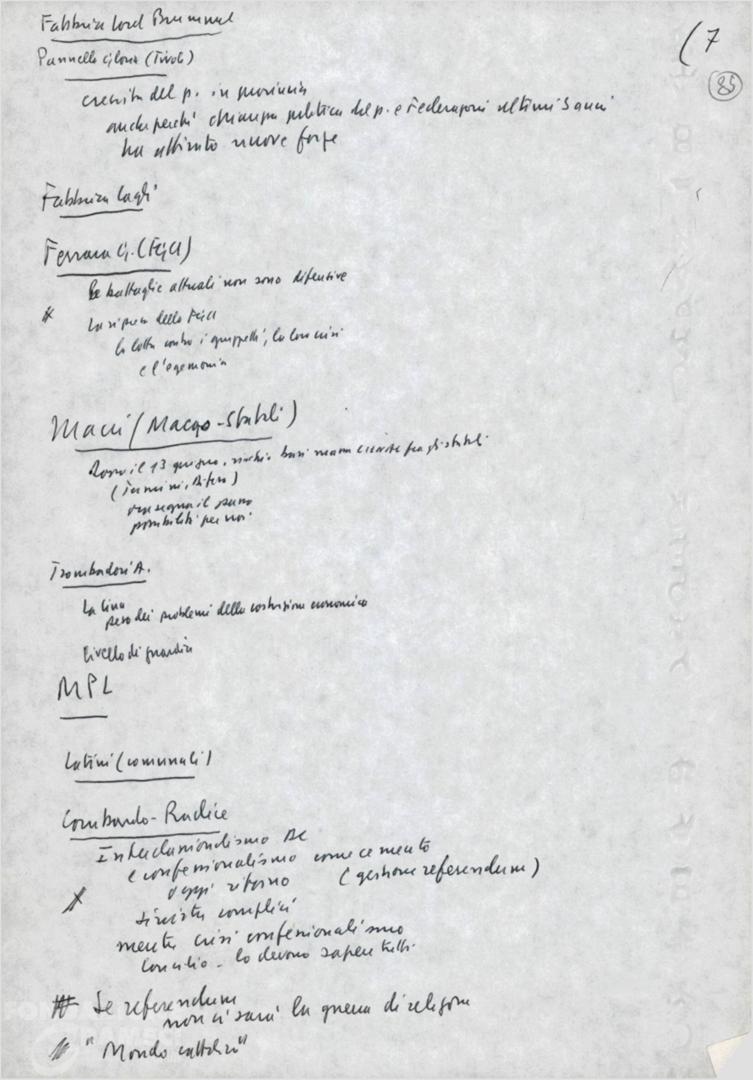 (7
85
Fabbrica Lord Brummel
Pannella Gloria (Tivoli)
crescita del p. in provincia
anche perché chiarezza politica del p. e Federazioni ultimi 5 anni
ha attirato nuove forze
Fabbrica Cagli
Ferrara G. (FGCI)
Le battaglie attuali non sono difensive
La ripresa della FGCI
la lotta contro i gruppetti, la loro crisi
e l'egemonia
Macri (Macao-Statali)
Dopo il 13 giugno,
(Termini, Difesa)
possibilità per noi
Trombadori A.
La linea
peso dei problemi della costruzione economica
Livello di guardia
MPL
Latini (comunali)
Lombardo-Radice
Interclassismo DC
e confessionalismo come cemento
oggi ritorno (gestione referendum)
sinistre complici
mentre crisi confessionalismo
Concilio - lo devono sapere tutti
Se referendum
non ci sarà la guerra di religione
"Mondo cattolico"